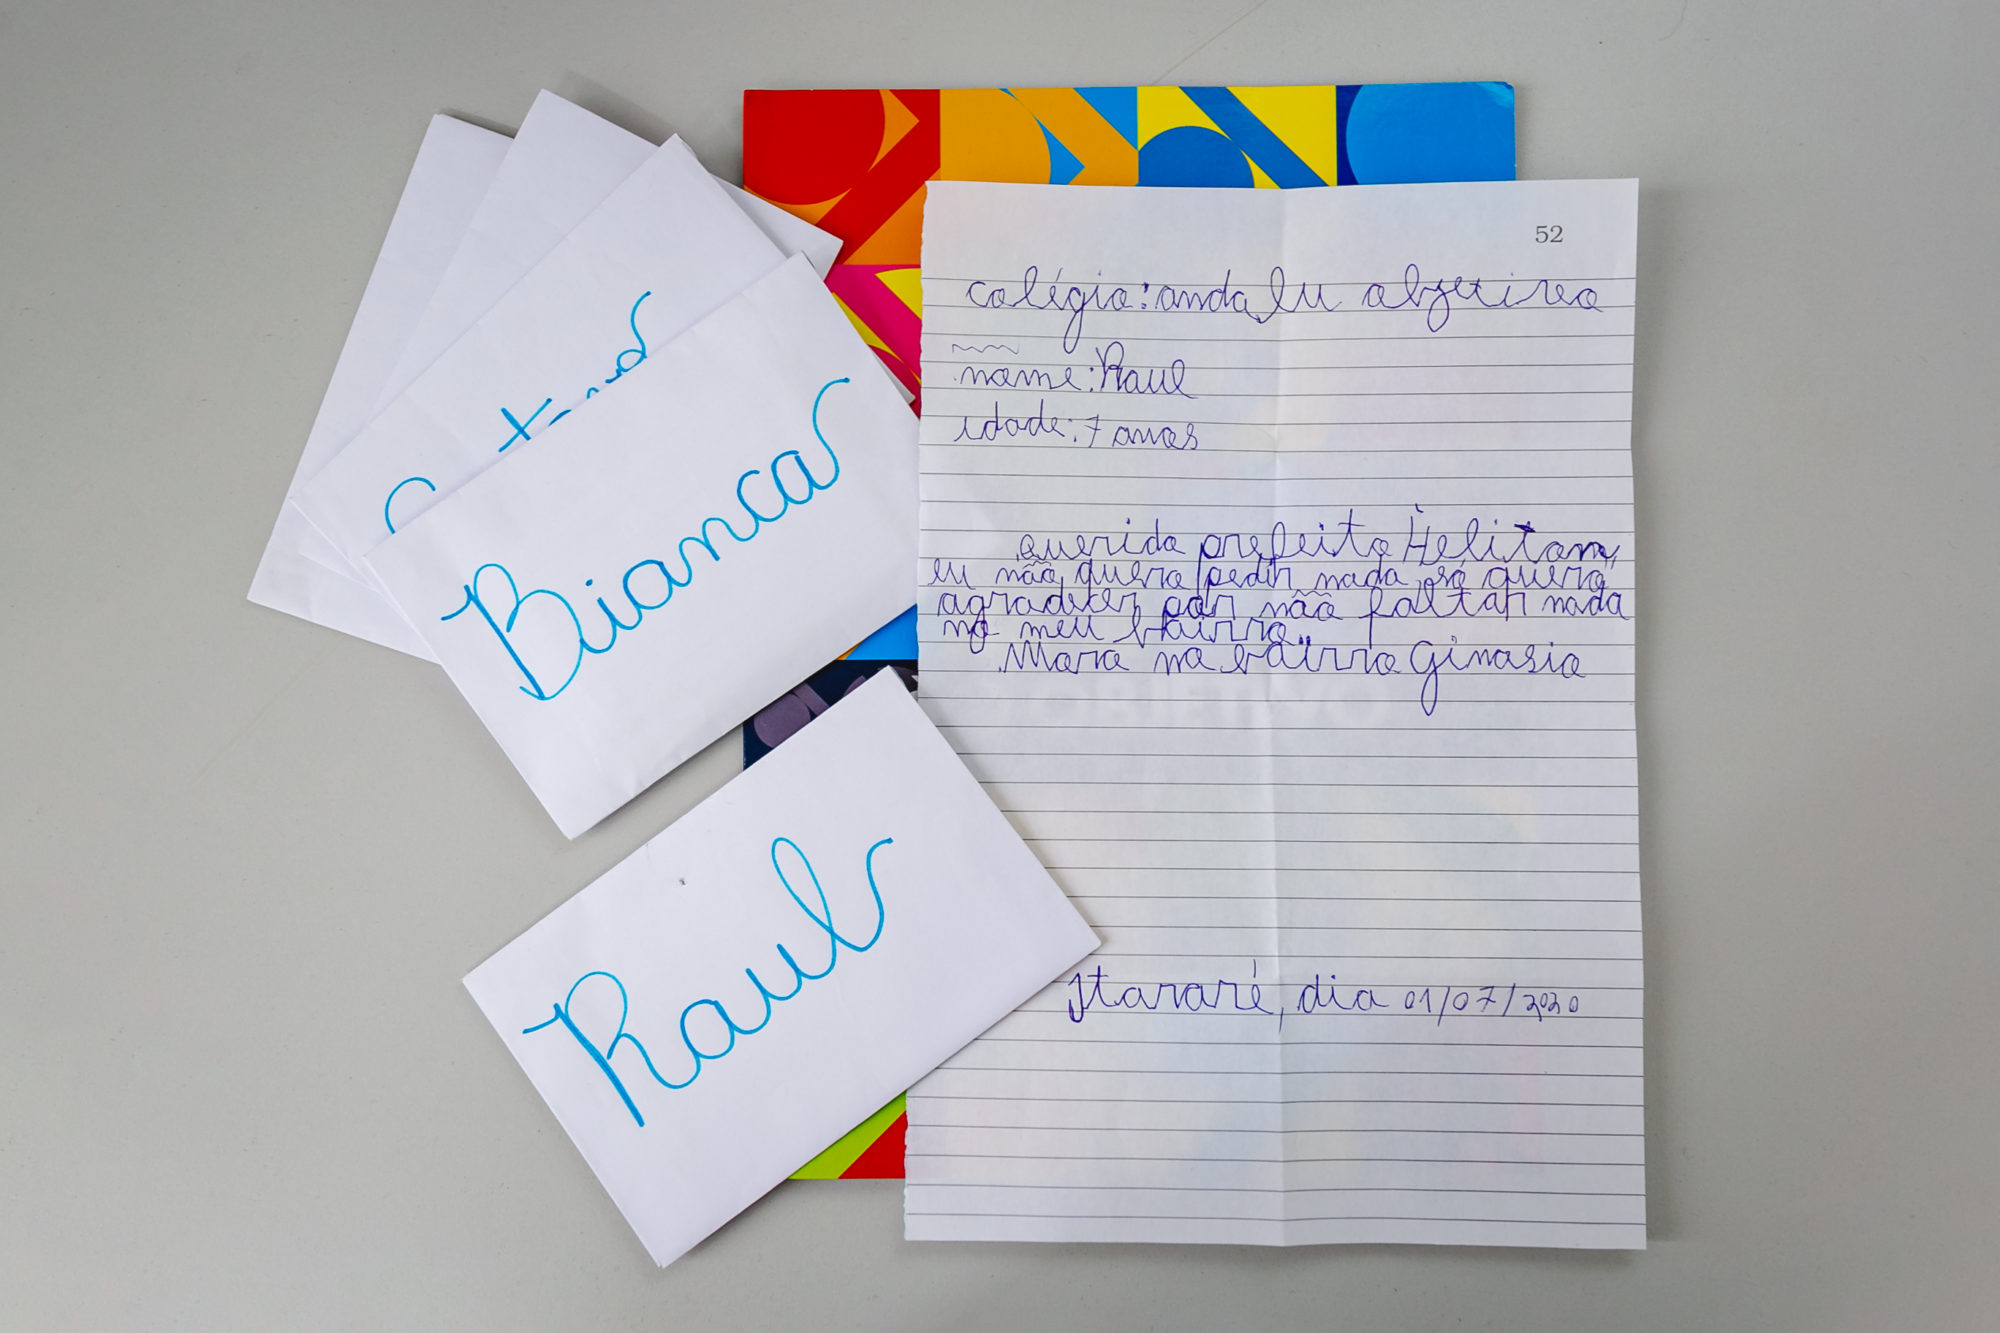 52
colégio: andalu objetivo
nome: Raul
idade: 7 anos
querido prefeito Helitom,
eu não quero pedir nada, só quero
agradecer por não faltar nada
no meu bairro.
Moro no bairro Ginasio
Itararé, dia 01/07/2020
Bianca
Raul